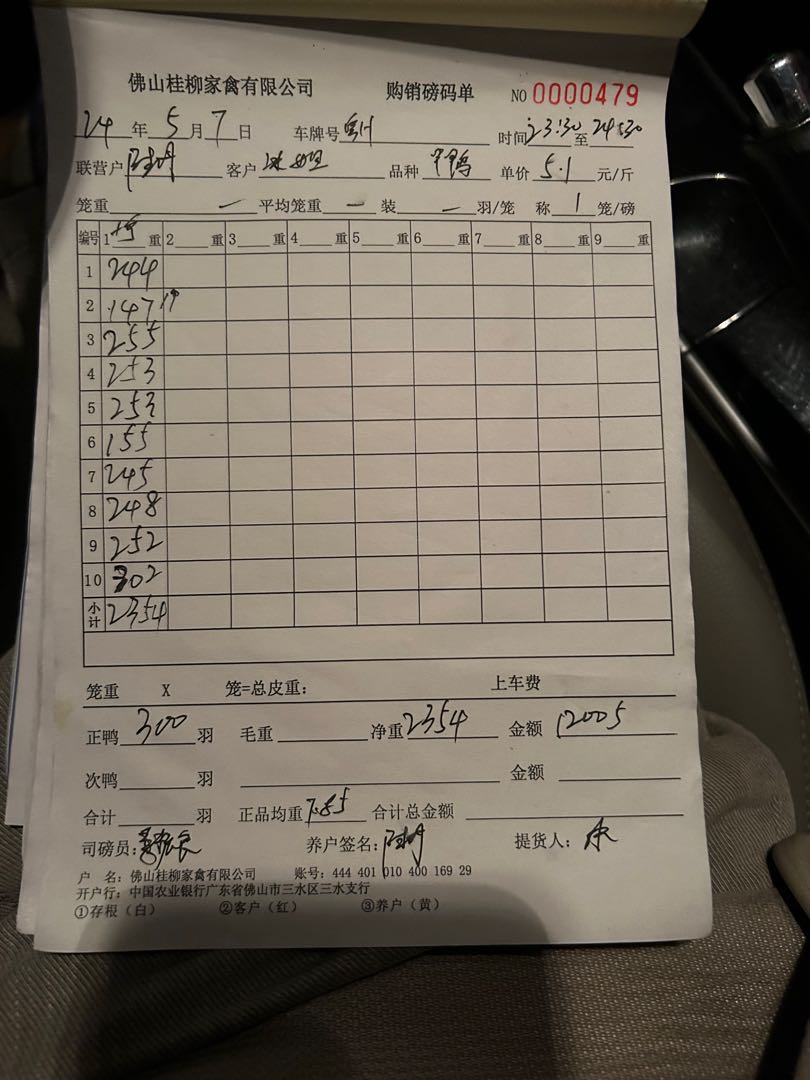 佛山桂柳家禽有限公司 购销磅码单 NO 0000479
24 年 5 月 7 日 车牌号 时间 23:30 至 24:30
联营户 客户 冰姐 品种 单价 5.1 元/斤
笼重 一 平均笼重 一 装 一 羽/笼 称 1 笼/磅
编号 1 重 2 重 3 重 4 重 5 重 6 重 7 重 8 重 9 重
1 244
2 147 19
3 255
4 253
5 253
6 155
7 245
8 248
9 252
10 302
小计 2354
笼重 X 笼=总皮重: 上车费
正鸭 300 羽 毛重 净重 2354 金额 12005
次鸭 羽 金额
合计 羽 正品均重 7.85 合计总金额
司磅员: 养户签名: 提货人:
户 名: 佛山桂柳家禽有限公司 账号: 444 401 010 400 169 29
开户行: 中国农业银行广东省佛山市三水区三水支行
①存根（白） ②客户（红） ③养户（黄）